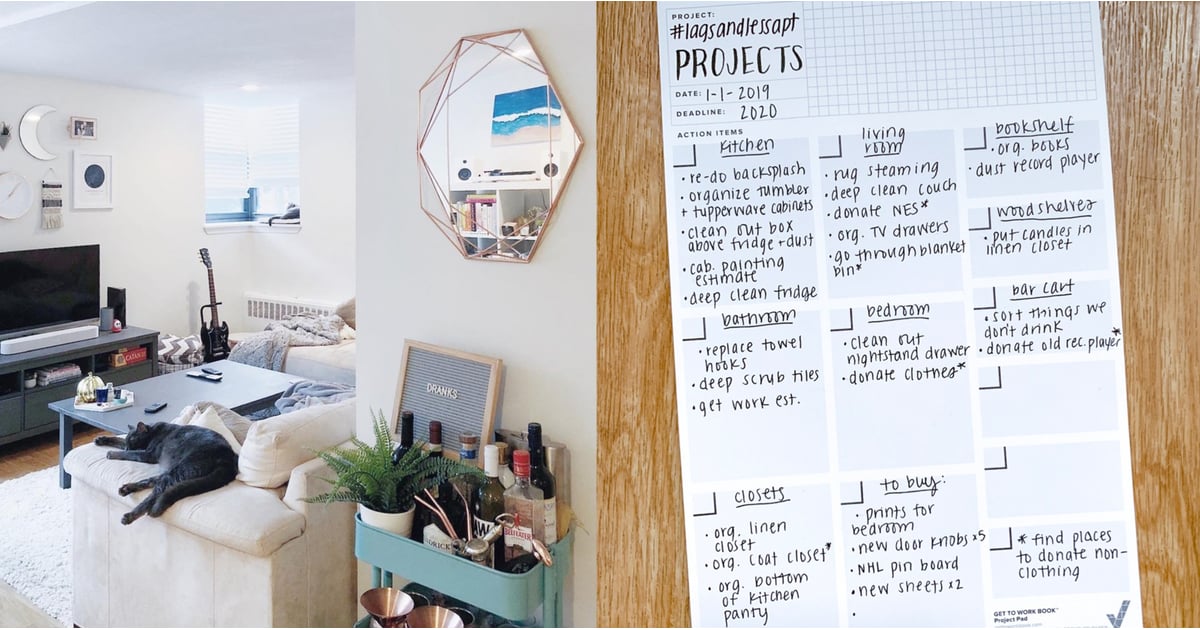 CATAN
DRANKS
BEEFEATER
PROJECT:
#lagsandlessapt
PROJECTS
DATE: 1-1-2019
DEADLINE: 2020
ACTION ITEMS
kitchen
• re-do backsplash
• organize tumbler
+ tupperware cabinets
• clean out box
above fridge + dust
• cab. painting
estimate
• deep clean fridge
living
room
• rug steaming
• deep clean couch
• donate NES*
• org. TV drawers
• go through blanket
bin*
bookshelf
• org. books
• dust record player
wood shelves
• put candles in
linen closet
bar cart
• sort things we
don't drink
• donate old rec. player*
bathroom
• replace towel
hooks
• deep scrub tiles
• get work est.
bedroom
• clean out
nightstand drawer
• donate clothes*
closets
• org. linen
closet
• org. coat closet*
• org. bottom
of kitchen
panty
to buy:
• prints for
bedroom
• new door knobs x5
• NHL pin board
• new sheets x2
•
* find places
to donate non-
clothing
GET TO WORK BOOK™
Project Pad